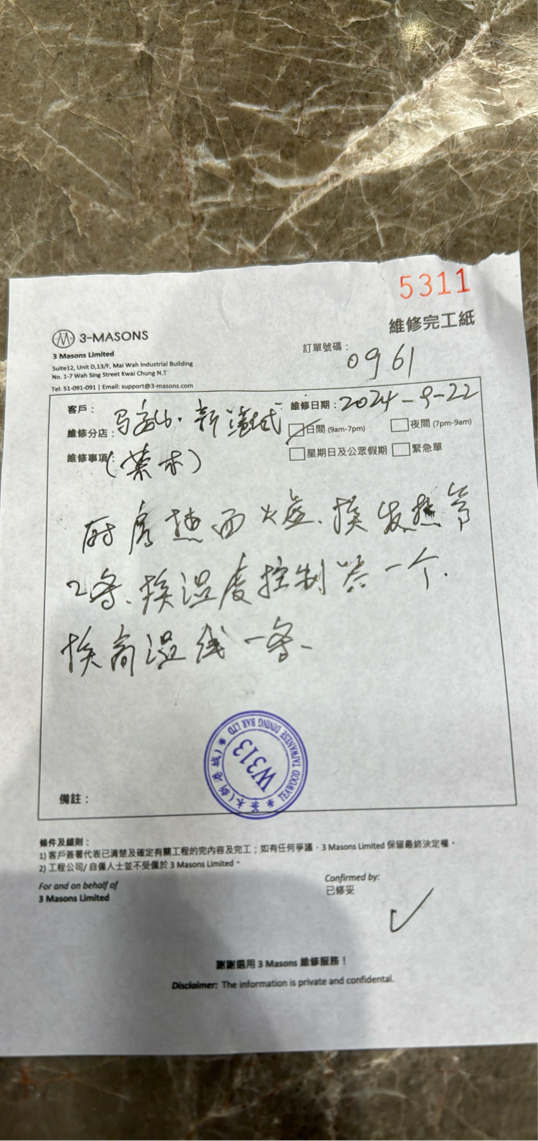 5311
3-MASONS
維修完工紙
3 Masons Limited
Suite12, Unit D,13/F, Mai Wah Industrial Building
No. 1-7 Wah Sing Street Kwai Chung N.T
Tel: 51-091-091 | Email: support@3-masons.com
訂單號碼： 0961
客戶： 马鞍山·新港城
維修日期： 2024-9-22
維修分店：
日間 (9am-7pm) 夜間 (7pm-9am)
維修事項： (茶木)
星期日及公眾假期 緊急單
厨房 面火 换发热管
2条、换温度控制 一个.
换高温线一条.
TEAWOOD TAIWANESE DINING BAR LTD
茶木(新港城)
W313
備註：
條件及細則：
1) 客戶簽署代表已清楚及確定有關工程的完內容及完工；如有任何爭議，3 Masons Limited 保留最終決定權。
2) 工程公司/自僱人士並不受僱於 3 Masons Limited。
For and on behalf of
3 Masons Limited
Confirmed by:
已修妥
謝謝選用 3 Masons 維修服務！
Disclaimer: The information is private and confidental.